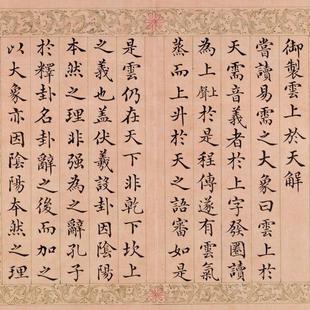 御製雲上於天解
嘗讀易需之大象曰雲上於
天需音義者於上字發圈讀
為上聲上於是程傳遂有雲氣
蒸而上升於天之語審如是
是雲仍在天下非乾下坎上
之義也蓋伏羲設卦因陰陽
本然之理非強為之辭孔子
於釋卦名卦辭之後而加之
以大象亦因陰陽本然之理